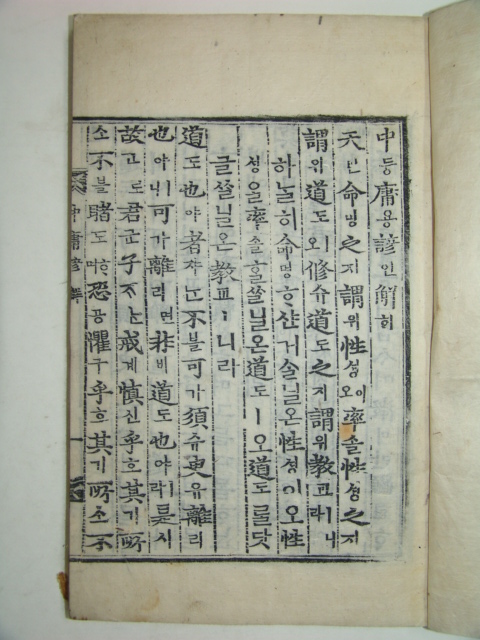 中듕庸용諺언解ᄒᆡ
天텬命명之지謂위性셩이오率솔性셩之지
謂위道도ㅣ오修슈道도之지謂위敎교ㅣ니라
하ᄂᆞᆯ히命명ᄒᆞ샨거슬닐온性셩이오性
셩을率솔ᄒᆞᆯᄊᆞᆯ닐온道도ㅣ오道도ᄅᆞᆯ닷
글쓸닐온敎교ㅣ니라
道도也야者쟈ᄂᆞᆫ不블可가須슈臾유離리
也야ㅣ니可가離리면非비道도也야ㅣ라是시
故고로君군子ᄌᆞᄂᆞᆫ戒계愼신乎호其기所
소不블睹도ᄒᆞ며恐공懼구乎호其기所소不
中庸諺解